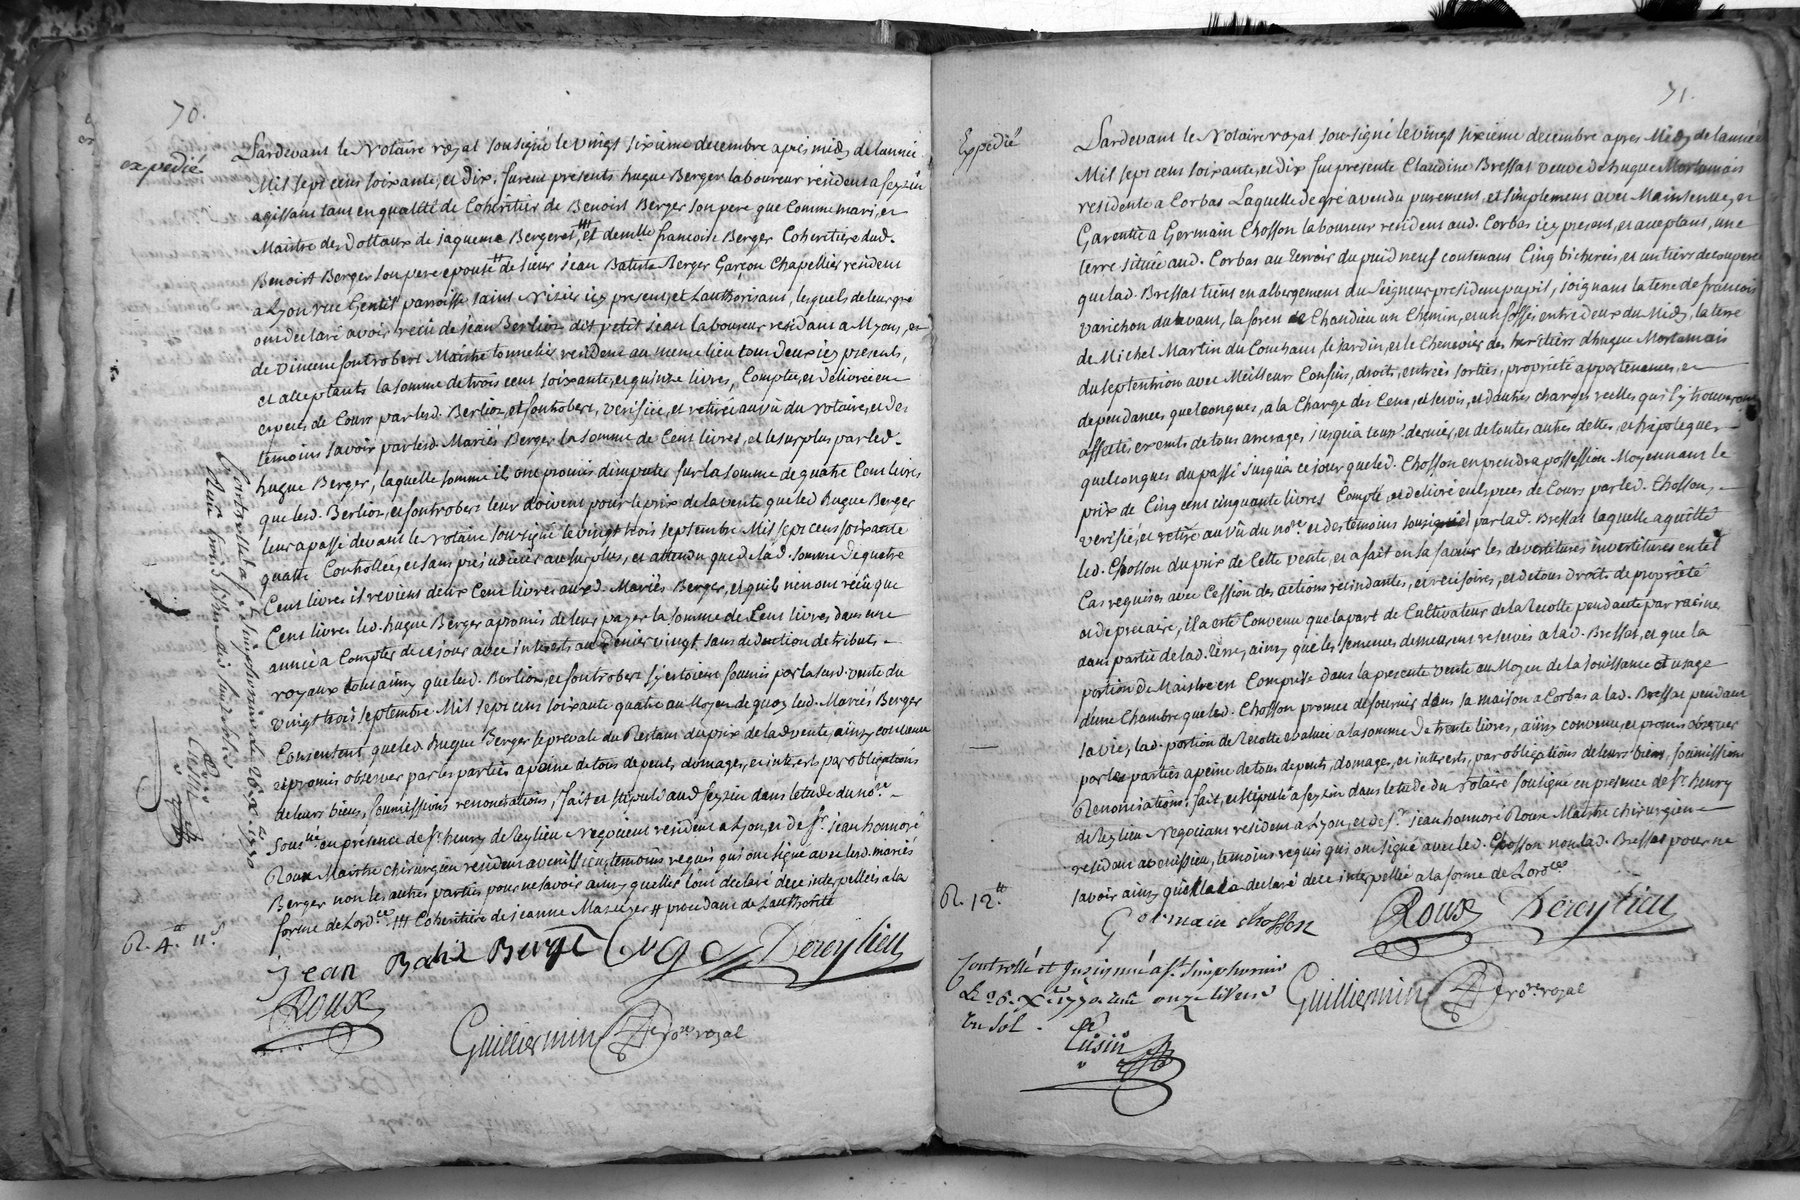 70.
expedié
Pardevant le Notaire royal sousigné le vingt sixieme decembre apres midy de lannée
Mil sept cent soixante, et dix, furent presents hugue Berger laboureur resident a feyzin
agissant tant en qualité de Coheritier de Benoist Berger son pere que Comme mari, et
Maitre des dottaux de jaqueme Bergeret, et demlle francoise Berger Coheritiere dud.
Benoist Berger son pere epouse de sieur jean Batiste Berger Garcon Chapellier resident
a Lyon rue Gentil parroisse saint Nizier icy present, et Lauthorisant, lesquels de leur gré
ont declaré avoir recû de jean Berlioz dit petit jean laboureur resident a Myons, et
de vincent fontrobert Maitre tonnelier resident au meme lieu tous deux icy presents,
et acceptants la somme de trois cent soixante, et quinze livres, Comptée, et delivrée en
especes de Cours par lesd. Berlioz, et fontrobert, verifiée, et retirée au vû du Notaire, et des
temoins savoir par lesd. Mariés Berger la somme de Cent livres, et le surplus par led.
hugue Berger, laquelle somme ils ont promis d'imputer sur la somme de quatre Cent livres
que lesd. Berlioz, et fontrobert leur doivent pour le prix de la vente que led hugue Berger
leur a passé devant le Notaire sousigné le vingt trois septembre Mil sept cent soixante
quatre Controllée, et sans prejudicier au surplus, et attendu que de lad. somme de quatre
Cent livres il revient deux Cent livres auxd. Mariés Berger, et quils nen ont recû que
Cent livres led. hugue Berger a promis de leur payer la somme de Cent livres dans une
année a Compter de ce jour avec interests au denier vingt sans deduction de tributs
royaux tout ainsy que lesd. Berlioz, et fontrobert sy estoient soumis par lasusd. vente du
vingt trois septembre Mil sept cent soixante quatre au Moyen de quoy lesd. Mariés Berger
Consentent que led. hugue Berger se prevale du Restant du prix de lad vente, ainsy convenu
et promis observer par les parties a peine de tous depents, domages, et interests par obligations
de leurs biens, soumissions renonciations, fait et stipulé aud feyzin dans letude du nore
Sousné en presence de sr. henry de Reylieu Negocient resident a Lyon, et de sr. jean honnoré
Roux Maitre chirurgien resident a venissieux temoins requis qui ont signé avec lesd. mariés
Berger non les autres parties pour ne savoir ainsy quelles lont declaré de ce interpellées a la
forme de Lordce Coheritiere de jeanne Mazuyer procedant de Lauthorité
R. 4 11
Jean Batis Berger Cuge Dereylieu
Roux
Guilliermin Nore royal
Controllé a st. Simphorien le 26 xbre 1770
71.
Expedié
Pardevant le Notaire royal sousigné le vingt sixieme decembre apres Midy de lannée
Mil sept cent soixante, et dix fut presente Claudine Bressat veuve de hugue Mortamais
residente a Corbas Laquelle de gré a vendu purement, et simplement avec Maintenue, et
Garentie a Germain Chosson laboureur resident aud. Corbas icy present, et acceptant, une
terre située aud. Corbas au Terroir du puid neuf contenant Cinq bicherées, et un tiers de coupée
que lad. Bressat tient en albergement du Seigneur president pupil, joignant la terre de francois
varichon du levant, la forest de Chandieu un Chemin, et un fossé entre deux du Midy, la terre
de Michel Martin du Couchant, le jardin, et le Chenevier des heritiers d'hugue Mortamais
du septentrion avec Meilleurs Confins, droits, entrées sorties, proprieté appartenances, et
dependances quelconques, a la Charge des Cens, et servis, et dautres charges reelles qui sy trouveront
affectés exempts de tous arrerages jusqua tout dernier, et de toutes autres dettes, et hipoteques
quelconques du passé jusqua ce jour que led. Chosson en prendra possession Moyennant le
prix de Cinq cent cinquante livres Compté, et delivré en especes de Cours par led. Chosson,
verifié, et retiré au vû du nore. et des temoins sousignés par lad. Bressat laquelle a quitté
led. Chosson du prix de Cette vente, et a fait en sa faveur les devestitures investitures en tel
Cas requises avec Cession des actions rescindantes, et rescisoires, et de tous droits de proprieté
et de precaire, il a eté Convenu que la part de Cultivateur de la Recolte pendante par racine
dans partie de lad. Terre, ainsy que les semences demeurent reservés a lad. Bressat, et que la
portion de Maitre est Comprise dans la presente vente au Moyen de la jouissance et usage
dune Chambre que led. Chosson promet de fournir dans sa maison a Corbas a lad. Bressat pendant
sa vie, lad. portion de Recolte evaluée a la somme de trente livres, ainsy convenu, et promis observer
par les parties a peine de tous depents, domage, et interest, par obligations de leurs biens, soumissions
Renonciations: fait, et stipulé a feyzin dans letude du Notaire sousigné en presence de sr. henry
de Reylieu Negociant resident a Lyon, et de sr. jean honnoré Roux Maitre chirurgien
resident a venissieu, temoins requis qui ont signé avec led. Chosson non lad. Bressat pour ne
savoir ainsy quelle la declaré de ce interpellée a la forme de Lordce
R. 12
Germain chosson Roux Dereylieu
Controllé et Insinué a st. Simphorien
Le 26. Xbre 1770. Recu onze livres
un sol.
Cusin
Guilliermin Nore royal